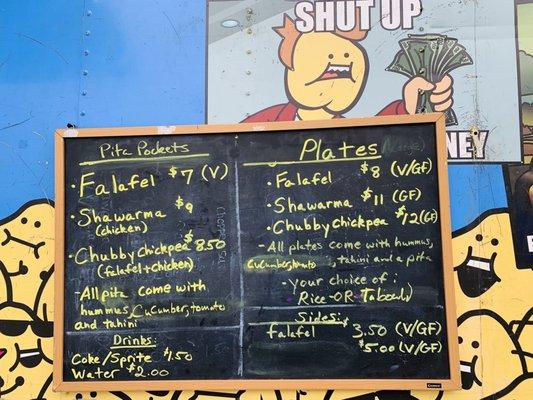 SHUT UP
NEY
Pita Pockets
• Falafel $7 (V)
• Shawarma $9
(chicken)
• Chubby Chickpea $8.50
(falafel + chicken)
• All pita come with
hummus, Cucumber, tomato
and tahini
Drinks:
Coke/Sprite $1.50
Water $2.00
Plates
• Falafel $8 (V/GF)
• Shawarma $11 (GF)
• Chubby Chickpea $12 (GF)
- All plates come with hummus,
Cucumber, tomato, tahini and a pita
- your choice of:
Rice -OR- Tabouli
Sides:
falafel 3.50 (V/GF)
$5.00 (V/GF)